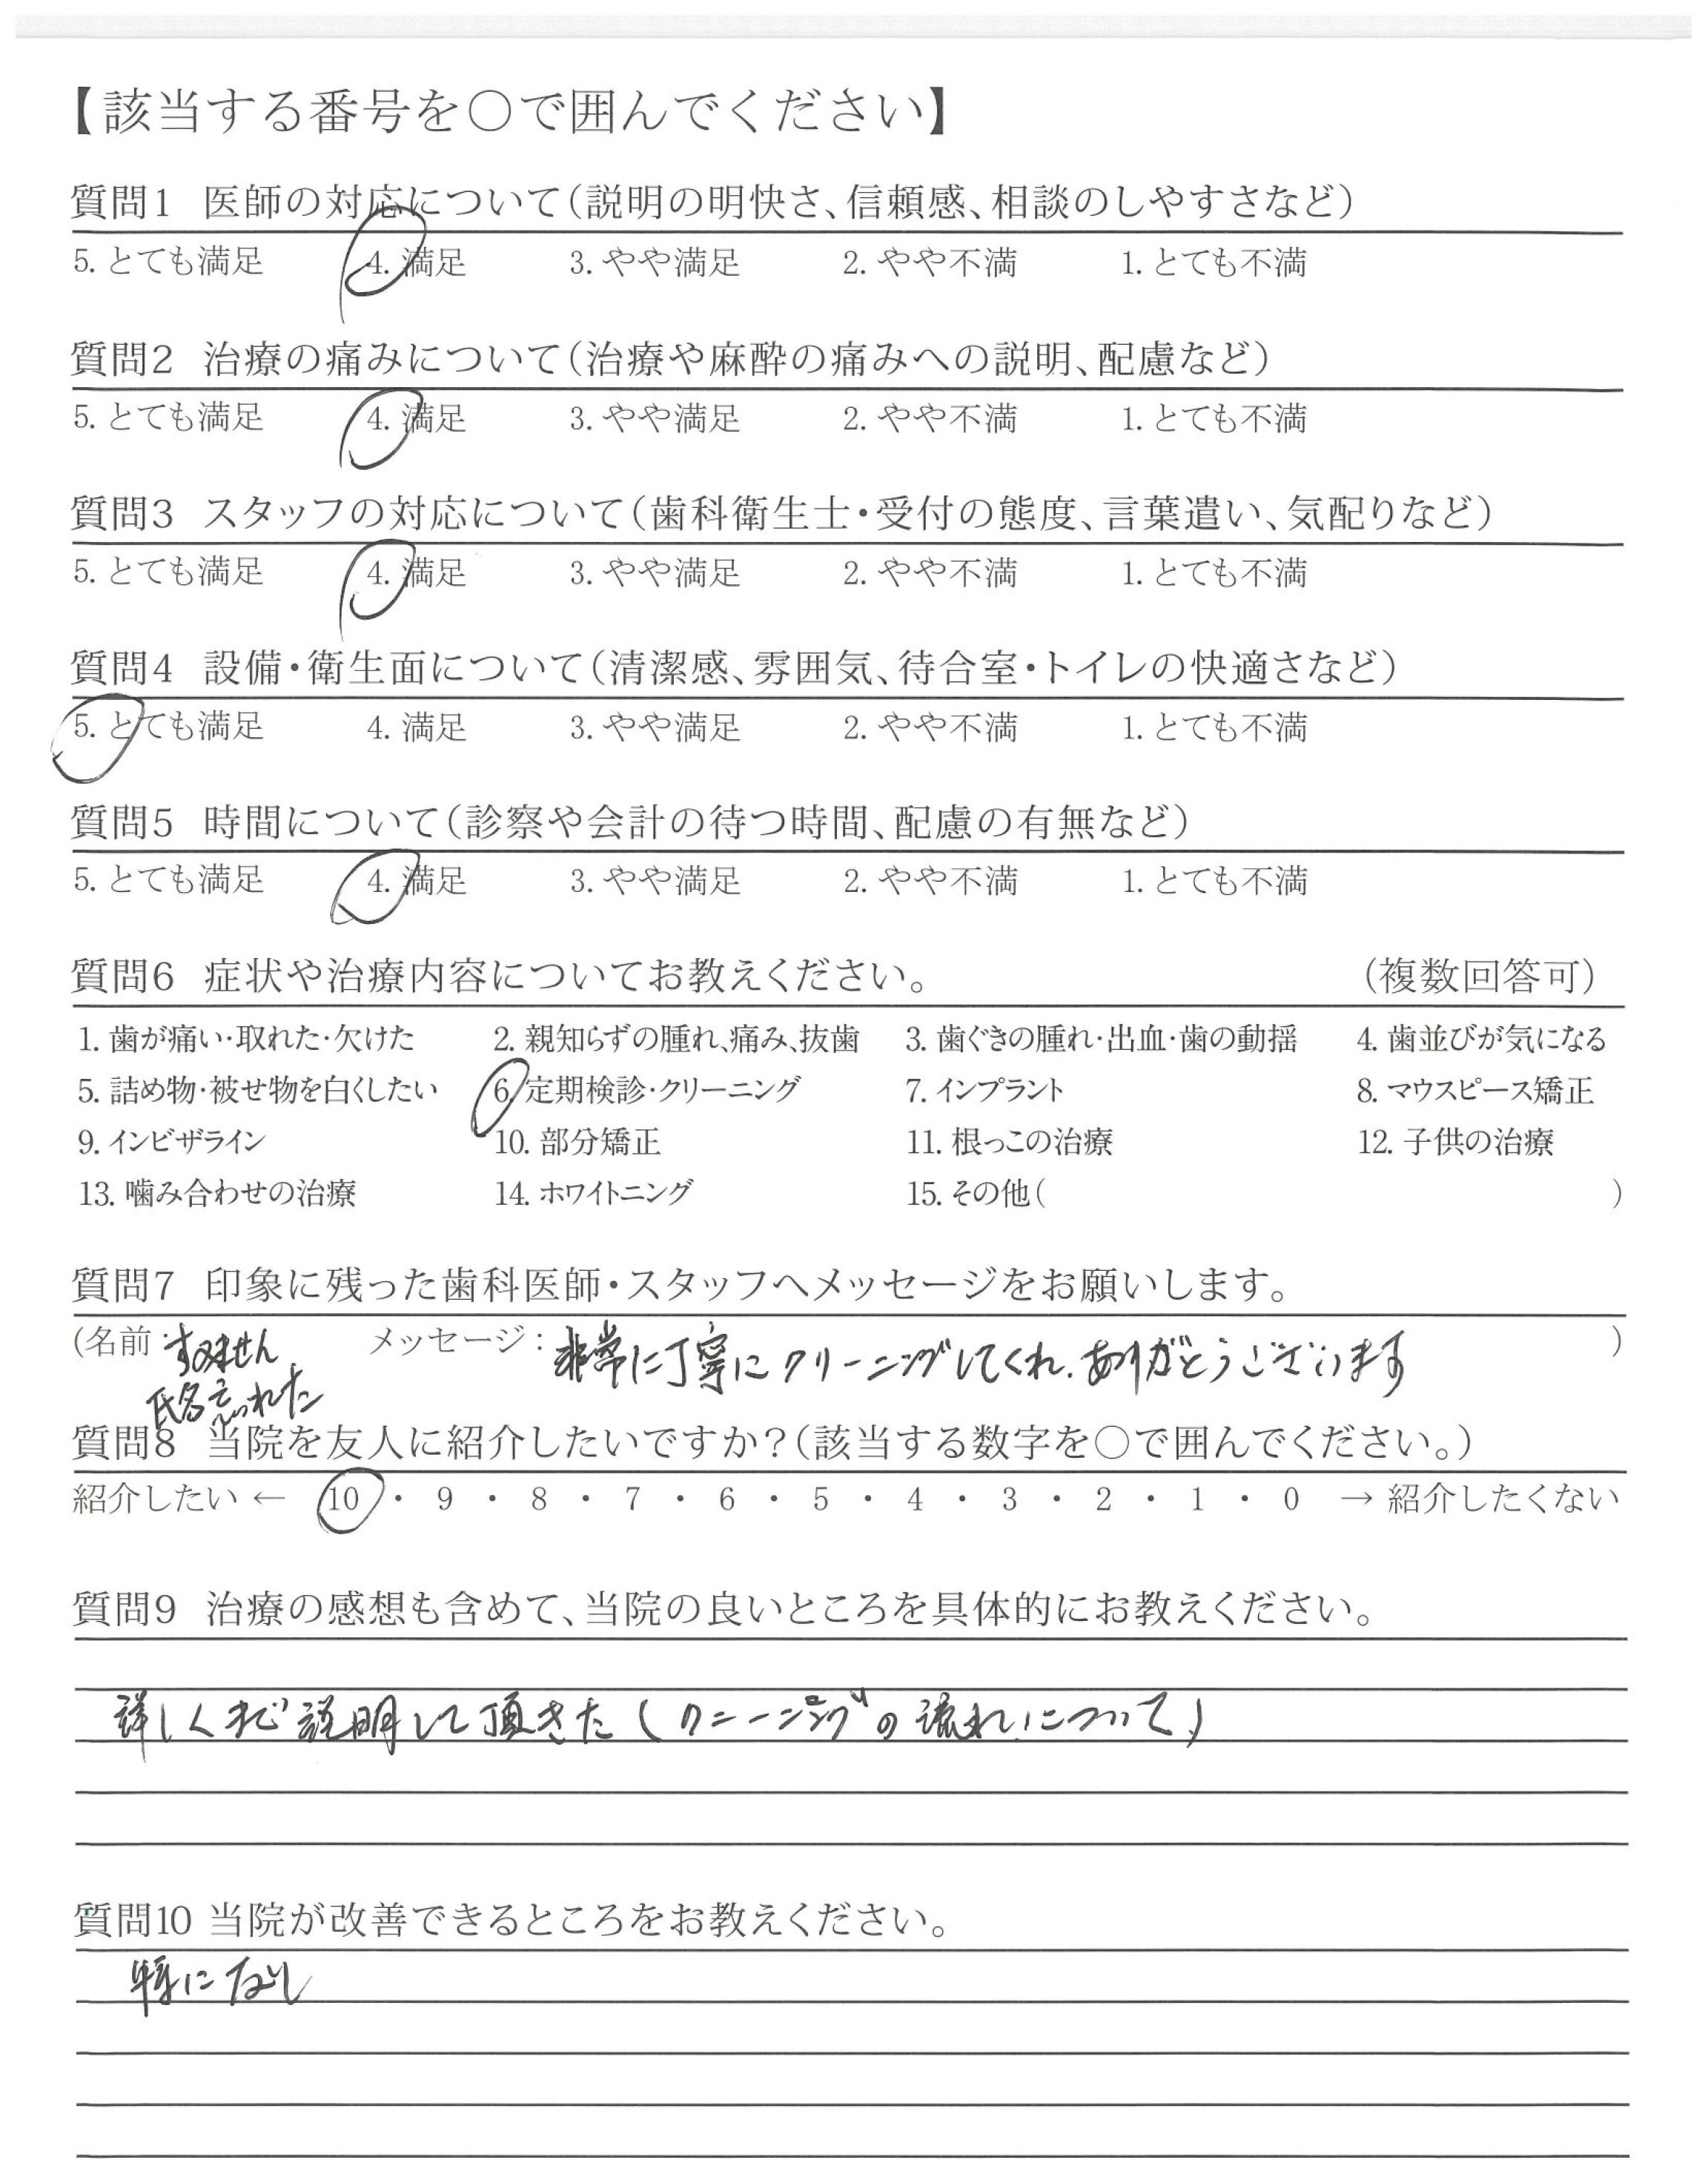 【該当する番号を○で囲んでください】
質問1 医師の対応について(説明の明快さ、信頼感、相談のしやすさなど)
5. とても満足 4. 満足 3. やや満足 2. やや不満 1. とても不満
質問2 治療の痛みについて(治療や麻酔の痛みへの説明、配慮など)
5. とても満足 4. 満足 3. やや満足 2. やや不満 1. とても不満
質問3 スタッフの対応について(歯科衛生士・受付の態度、言葉遣い、気配りなど)
5. とても満足 4. 満足 3. やや満足 2. やや不満 1. とても不満
質問4 設備・衛生面について(清潔感、雰囲気、待合室・トイレの快適さなど)
5. とても満足 4. 満足 3. やや満足 2. やや不満 1. とても不満
質問5 時間について(診察や会計の待つ時間、配慮の有無など)
5. とても満足 4. 満足 3. やや満足 2. やや不満 1. とても不満
質問6 症状や治療内容についてお教えください。 (複数回答可)
1. 歯が痛い・取れた・欠けた 2. 親知らずの腫れ、痛み、抜歯 3. 歯ぐきの腫れ・出血・歯の動揺 4. 歯並びが気になる
5. 詰め物・被せ物を白くしたい 6. 定期検診・クリーニング 7. インプラント 8. マウスピース矯正
9. インビザライン 10. 部分矯正 11. 根っこの治療 12. 子供の治療
13. 噛み合わせの治療 14. ホワイトニング 15. その他( )
質問7 印象に残った歯科医師・スタッフへメッセージをお願いします。
(名前:すみません メッセージ:非常に丁寧にクリーニングしてくれ、ありがとうございます )
氏名忘れた
質問8 当院を友人に紹介したいですか?(該当する数字を○で囲んでください。)
紹介したい ← 10 ・ 9 ・ 8 ・ 7 ・ 6 ・ 5 ・ 4 ・ 3 ・ 2 ・ 1 ・ 0 → 紹介したくない
質問9 治療の感想も含めて、当院の良いところを具体的にお教えください。
詳しくまで説明して頂きた(クニーニングの流れについて)
質問10 当院が改善できるところをお教えください。
特になし